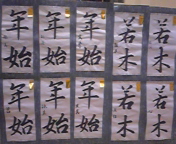 若木
若木
年始
年始
年始
若木
若木
年始
年始
年始